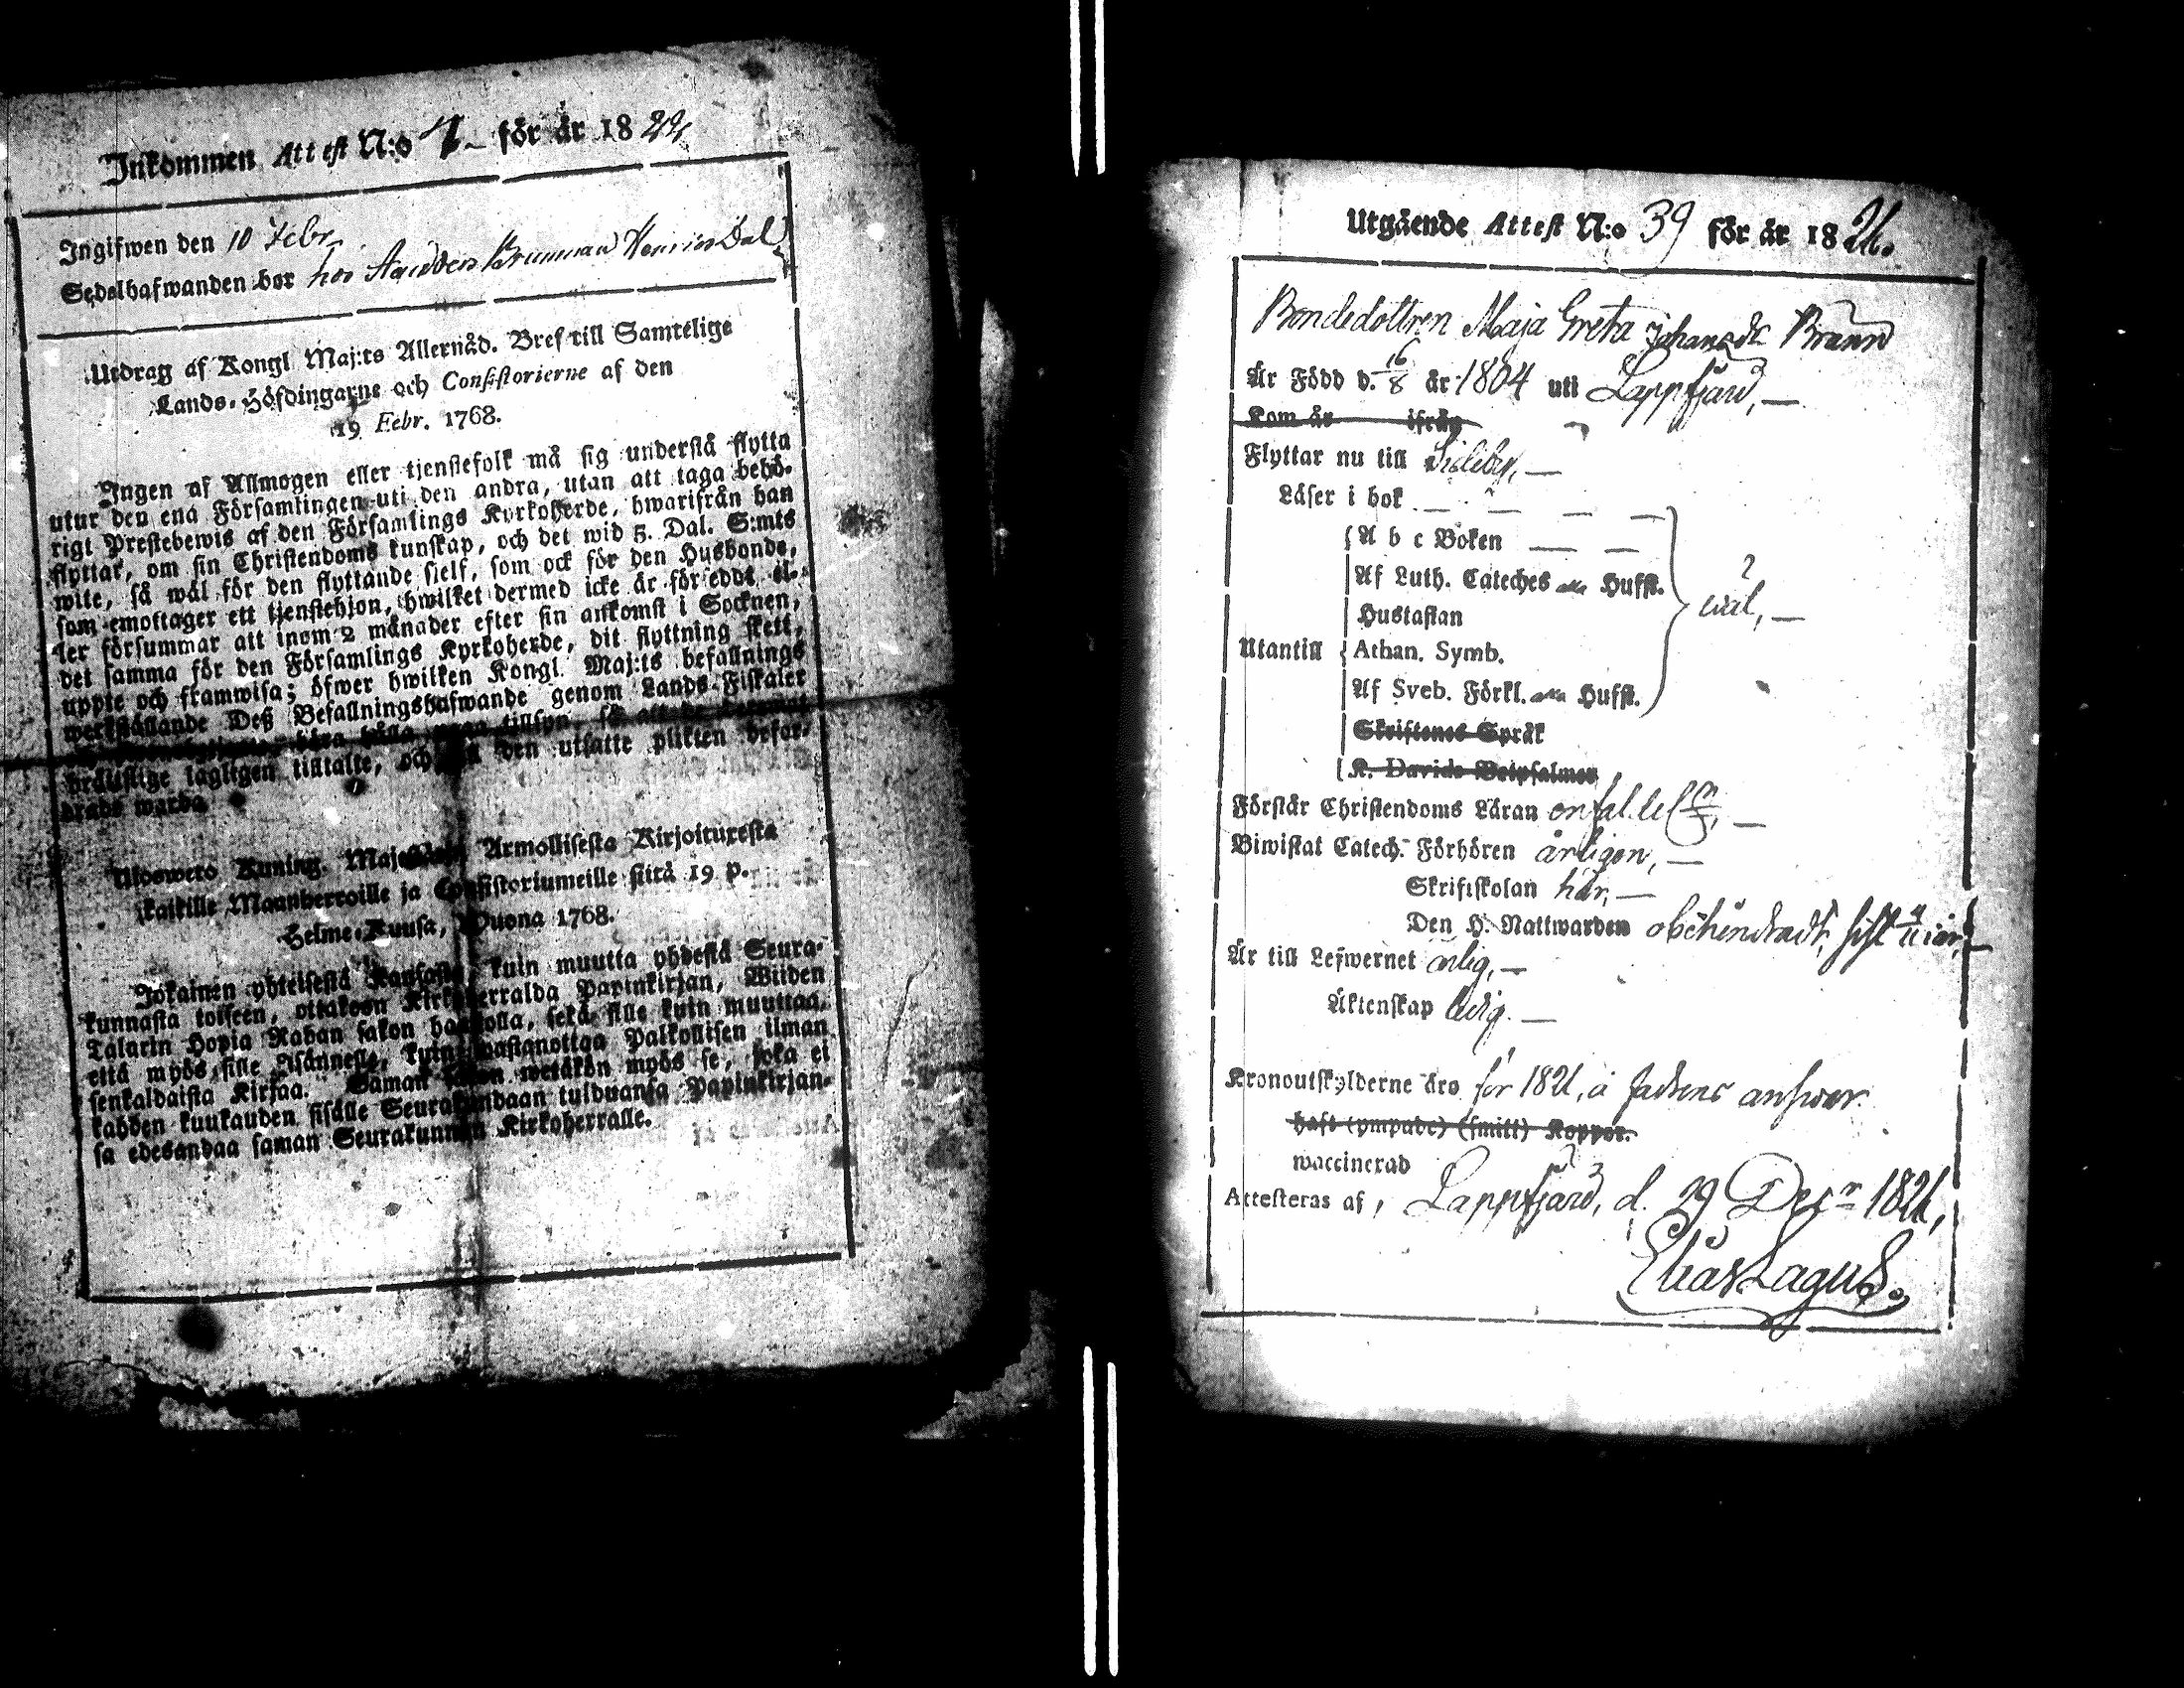 Inkommen Attest N:o 7 för år 1822
Ingifwen den 10 Febr.
Sedelhafwanden bor hos
Utdrag af Kongl Maj:ts Allernåd. Bref till Samtelige
Lands-Höfdingarne och Consistorierne af den
19 Febr. 1768.
Ingen af Allmogen eller tjenstefolk må sig understå flytta
utur den ena Församlingen uti den andra, utan att taga behö-
rigt Prestebewis af den Församlings Kyrkoherde, hwarifrån han
flyttar, om sin Christendoms kunskap, och det wid 5. Dal. S:mts
wite, så wäl för den flyttande sielf, som ock för den Husbonde,
som emottager ett tjenstehjon, hwilket dermed icke är föreddt el-
ler försummar att inom 2 månader efter sin ankomst i Socknen,
det samma för den Församlings Kyrkoherde, dit flyttning skett,
uppte och framwisa; öfwer hwilken Kongl. Maj:ts befallnings
werkställande Deß Befallningshafwande genom Lands-Fiskaler
tilltalte, och den utsatte plikten befor-
drade warda
Ulosweto Kuning. Armollisesta Kirjoituxesta
kaikille Maanherroille ja Consistoriumeille siitä 19 p.
Helme-Kuusa, Wuona 1768.
Jokainen yhteisestä Kansasta, kuin muutta yhdestä Seura-
kunnasta toiseen, ottakoon Kirkoherralda Papinkirjan, Wiiden
Talarin Hopia Rahan sakon haastolla, sekä sille kuin muuttaa,
että myös sille Isännelle, kuin wastanottaa Palkollisen ilman
senkaldaista Kirjaa. Saman wetäkön myös se, joka ei
kahden kuukauden sisälle Seurakundaan tulduansa Papinkirjan-
sa edesandaa saman Seurakunnan Kirkoherralle.
Utgående Attest N:o 39 för år 1821.
Bondedottren Maja Greta Johansdr Brann
Är Född d. 16/8 år 1804 uti Lappfjärd,
Kom år ifrån
Flyttar nu till Sideby,
Läser i bok
A b c Boken
Af Luth. Cateches Husst.
Hustaflan
wäl,
Utantill Athan. Symb.
Af Sveb. Förkl. Husst.
Skriftenes Språk
K. Davids Botpsalmer
Förstår Christendoms Läran
Biwistat Catech. Förhören årligen,
Skriftskolan här,
Den H. Nattwarden obehindradt, sist
Är till Lefwernet ärlig,
Äktenskap ledig.
Kronoutskylderne äro för 1821, å fadrens answar.
haft (ympade) (smitt) Koppor.
waccinerad
Attesteras af, Lappfjärd, d. 29 Decr 1821,
Elias Lagus.